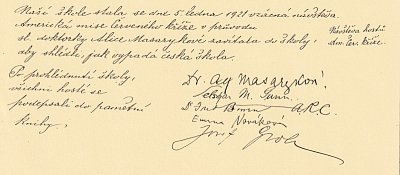 Naší škole stala se dne 5 ledna 1921 vzácná návštěva.
Americká mise Červeného kříže v průvodu
sl. doktorky Alice Masarykové zavítala do školy,
aby shlédla, jak vypadá česká škola.
Návštěva hostů
Am. čer. kříže.
Po prohlédnutí školy,
všichni hosté se
podepsali do pamětní
knihy.
Dr. Masaryková
M.
A.R.C.
Emma Nováková
Josef